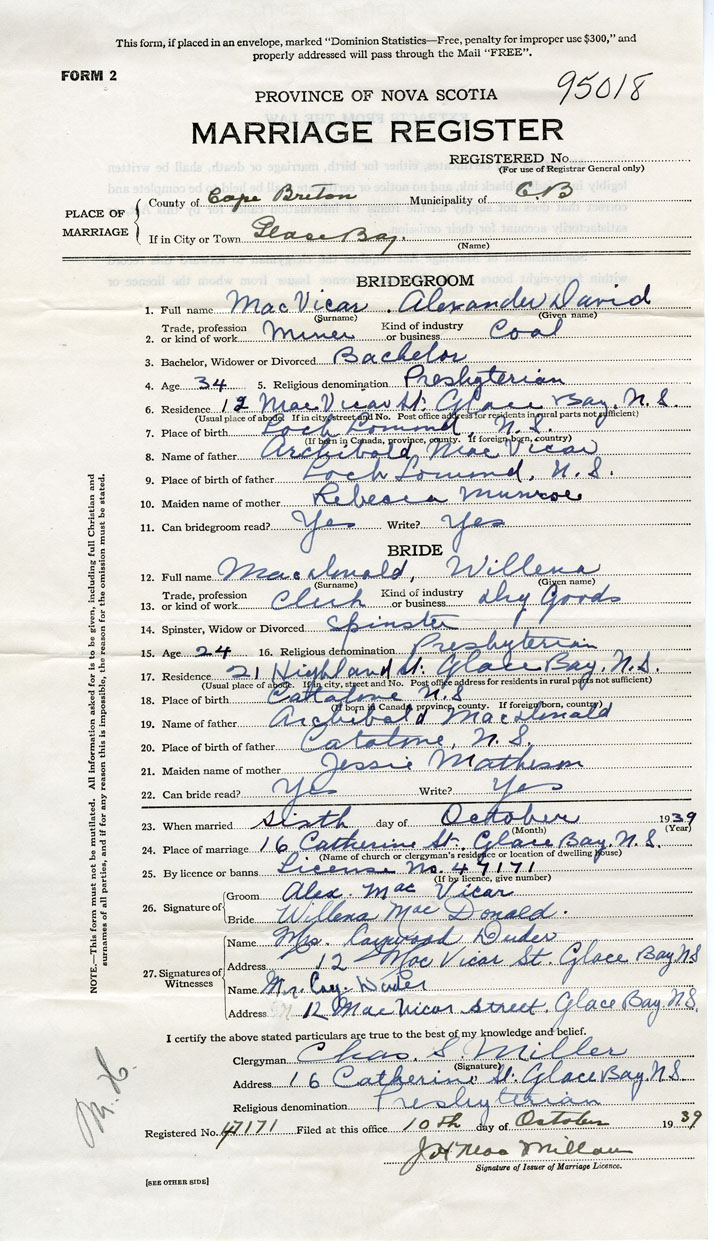 This form, if placed in an envelope, marked "Dominion Statistics—Free, penalty for improper use $300," and
properly addressed will pass through the Mail "FREE".
FORM 2
95018
PROVINCE OF NOVA SCOTIA
MARRIAGE REGISTER
REGISTERED No.
(For use of Registrar General only)
PLACE OF MARRIAGE
County of Cape Breton Municipality of C.B
If in City or Town Glace Bay.
(Name)
BRIDEGROOM
1. Full name MacVicar. Alexander David
(Surname) (Given name)
2. Trade, profession or kind of work Miner Kind of industry or business Coal
3. Bachelor, Widower or Divorced Bachelor
4. Age 34 5. Religious denomination Presbyterian
6. Residence 12 MacVicar St. Glace Bay, N.S.
(Usual place of abode. If in city, street and No. Post office address for residents in rural parts not sufficient)
7. Place of birth Loch Lomond N.S.
(If born in Canada, province, county. If foreign born, country)
8. Name of father Archibald MacVicar
9. Place of birth of father Loch Lomond, N.S.
10. Maiden name of mother Rebecca Munroe
11. Can bridegroom read? Yes Write? Yes
BRIDE
12. Full name MacDonald, Willena
(Surname) (Given name)
13. Trade, profession or kind of work Clerk Kind of industry or business Dry Goods
14. Spinster, Widow or Divorced Spinster
15. Age 24 16. Religious denomination Presbyterian
17. Residence 21 Highland St. Glace Bay, N.S.
(Usual place of abode. If in city, street and No. Post office address for residents in rural parts not sufficient)
18. Place of birth Catalone N.S
(If born in Canada, province, county. If foreign born, country)
19. Name of father Archibald MacDonald
20. Place of father Catalone, N.S.
21. Maiden name of mother Jessie Matheson
22. Can bride read? Yes Write? Yes
23. When married Sixth day of October 1939
(Month) (Year)
24. Place of marriage 16 Catherine St. Glace Bay. N.S.
(Name of church or clergyman's residence or location of dwelling house)
25. By licence or banns License No. 47171
(If by licence, give number)
26. Signature of
Groom Alex. MacVicar
Bride Willena MacDonald.
27. Signatures of Witnesses
Name Mrs. Duder
Address 12 MacVicar St. Glace Bay NS
Name Mr. Duder
Address 12 MacVicar Street. Glace Bay. N.S.
I certify the above stated particulars are true to the best of my knowledge and belief.
Clergyman Chas. S. Miller
(Signature)
Address 16 Catherine St. Glace Bay. N.S.
Religious denomination Presbyterian
Registered No. 47171 Filed at this office 10th day of October 1939
MacMillan
Signature of Issuer of Marriage Licence.
[SEE OTHER SIDE]
NOTE.—This form must not be mutilated. All information asked for is to be given, including full Christian and
surnames of all parties, and if for any reason this is impossible, the reason for the omission must be stated.